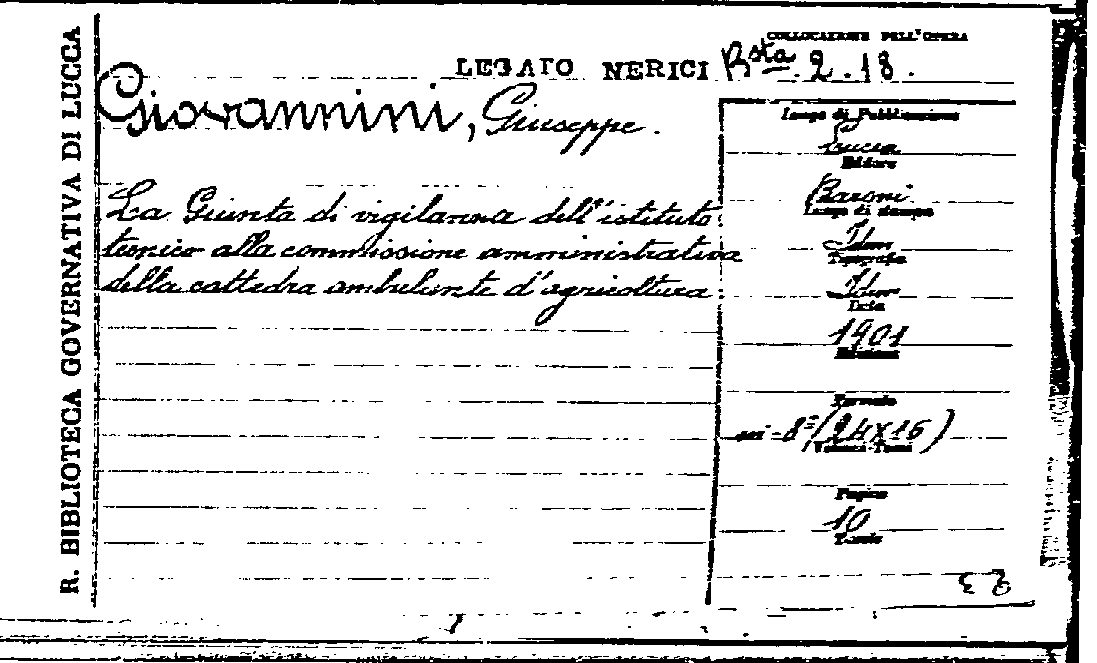 R. BIBLIOTECA GOVERNATIVA DI LUCCA
COLLOCAZIONE DELL'OPERA
LEGATO NERICI Bsta 2.18.
Giovannini, Giuseppe.
La Giunta di vigilanza dell'istituto
tecnico alla commissione amministrativa
della cattedra ambulante d'agricoltura.
Luogo di Pubblicazione
Lucca
Editore
Baroni
Luogo di stampa
Idem
Tipografia
Idem
Data
1901
Edizione
Formato
in-8°(24x16)
Volumi-Tomi
Pagine
10
Tavole